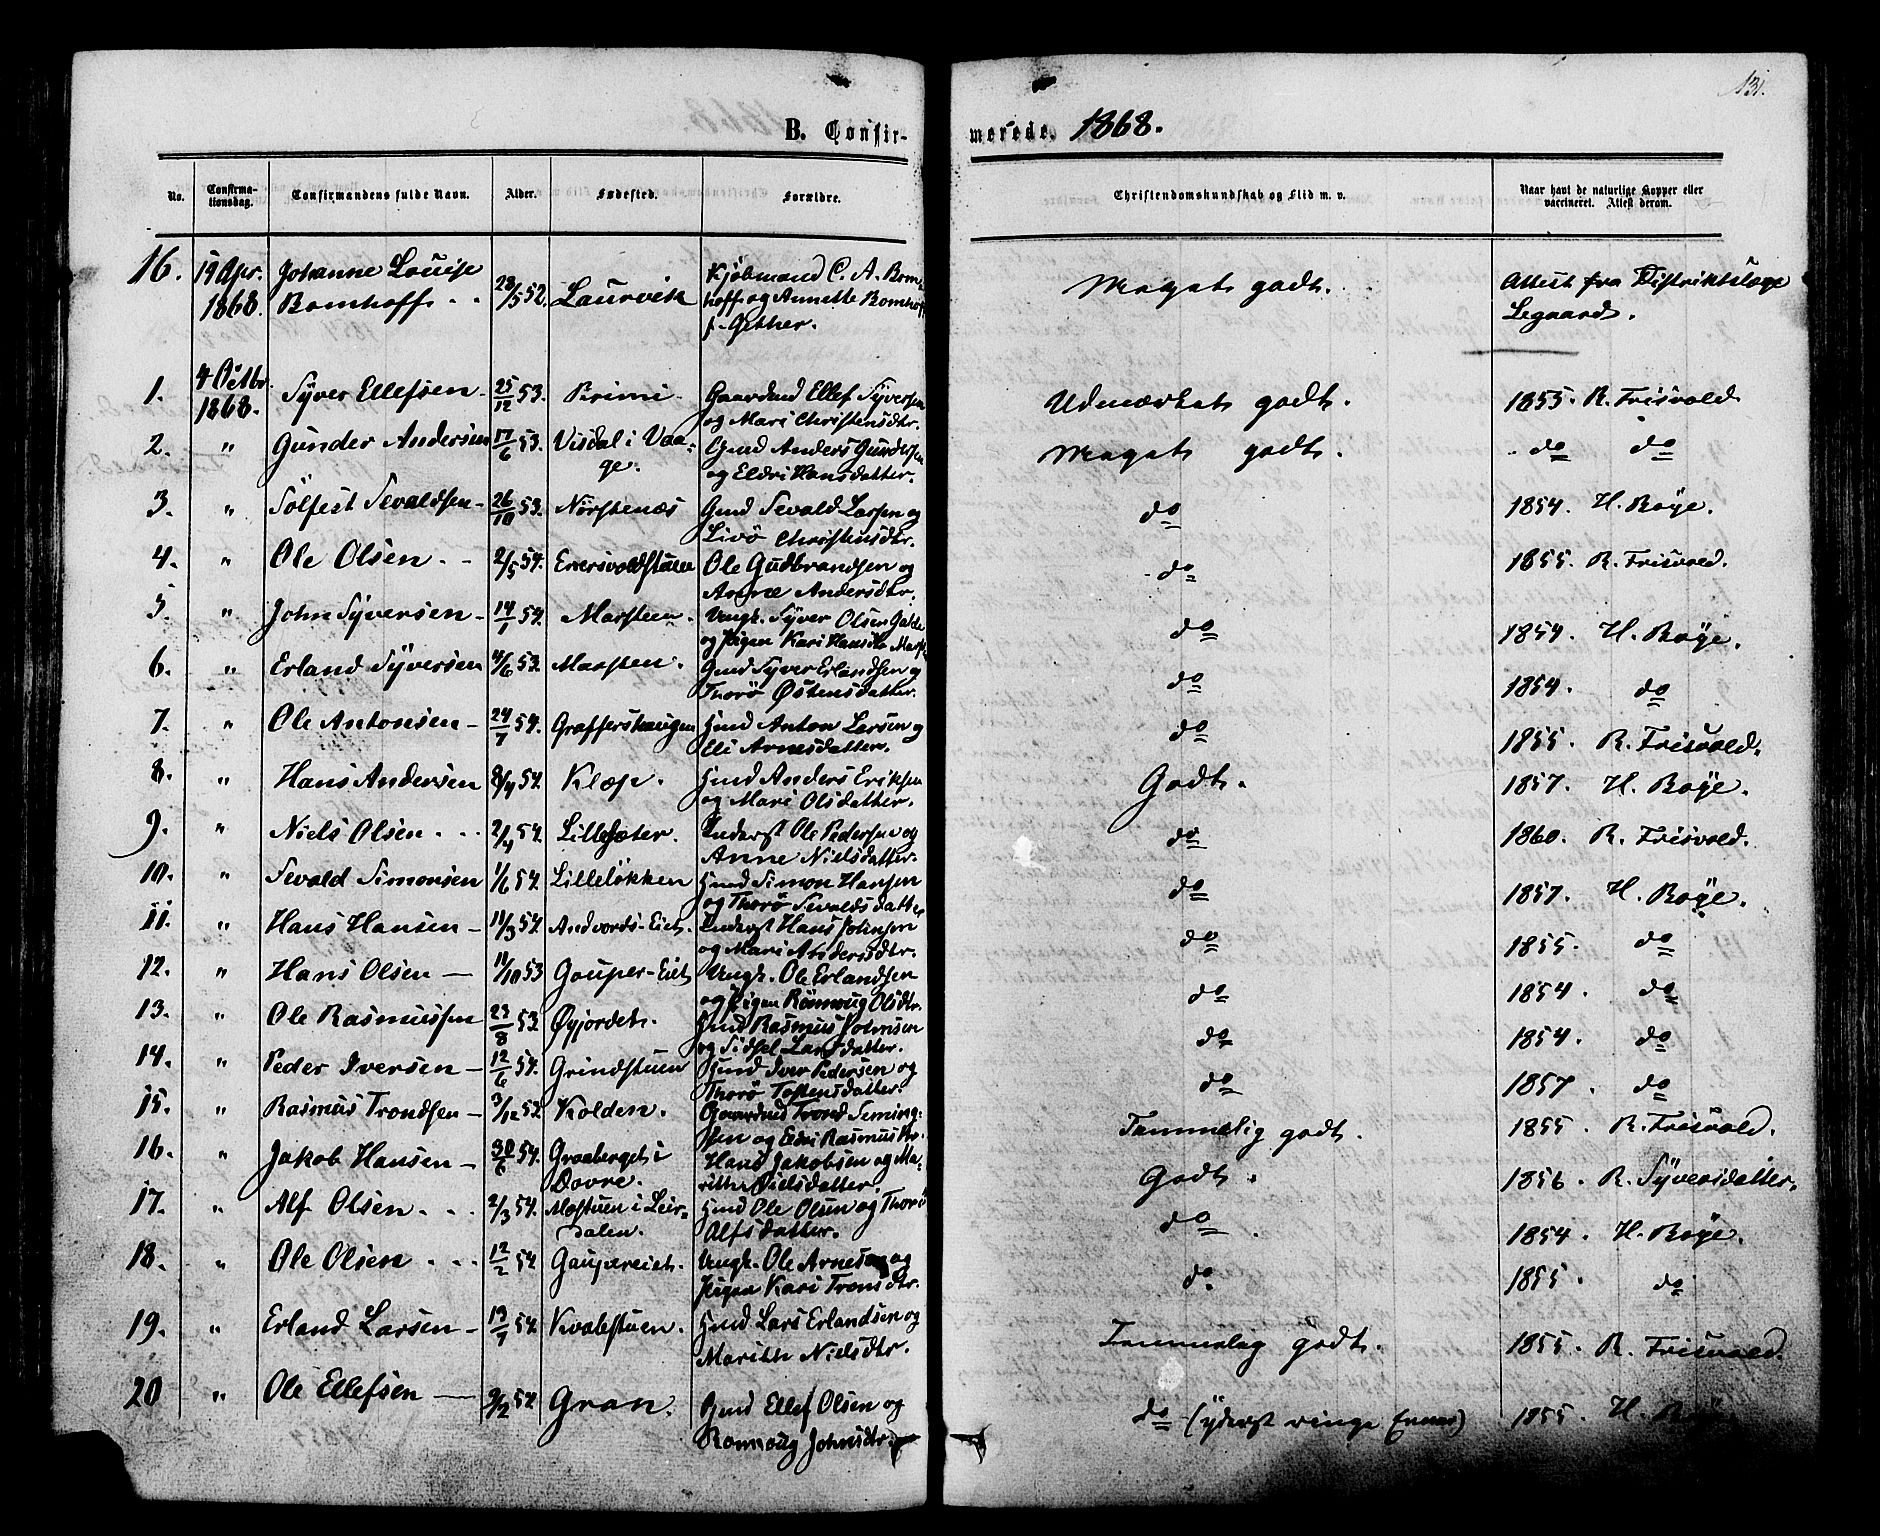 131.
B. Confir-
merede. 1868.
No.
Confirma-
tionsdag.
Confirmandens fulde Navn.
Alder.
Fødested.
Forældre.
Christendomskundskab og Flid m. v.
Naar havt de naturlige Kopper eller
vaccineret. Attest derom.
16. 19 Apr. 1868. Johanne Louise Bomhoff - - 28/5 52. Laurvik Kjøbmand C. A. Bom-
hoff og Annette Bomhoff
f. Gether. Meget godt. Attest fra Distriktslæge
Legaard.
1. 4 Octbr. 1868. Syver Ellefsen - 25/12 53. Brimi - Gaardmd Ellef Syversen
og Mari Christensdtr. Udmærket godt. 1855. R. Frisvold
2. " Gunder Andersen 17/6 53. Visdal i Vaa-
ge. Gmd Anders Gundersen
og Eldri Hansdatter. Meget godt. do do
3. " Sølfest Sevaldsen - 26/10 53. Nørstenæs Gmd Sevald Larsen og
Livø Christensdtr. do 1854. H. Bøye.
4. " Ole Olsen - - 2/5 54. Ole Gudbrandsen og
Anne Andersdtr. do 1855. R. Frisvold.
5. " John Syversen - 14/1 54. Marsteen. Ungk. Syver Olsen
og Pigen Kari do 1854. H. Bøye.
6. " Erland Syversen /6 53. Marsten. Gmd Syver Erlandsen og
Thorø Østensdatter. do 1854. do
7. " Ole Antonsen - 24/7 54. Graffershaugen Hmd Anton Larsen og
Eli Arnesdatter. do 1855. R. Frisvold.
8. " Hans Andersen 8/4 54. Klæp. Hmd Anders Eriksen
og Mari Olsdatter. Godt. 1857. H. Bøye.
9. " Niels Olsen. - - 2/4 54. Lillesæter. Inderst Ole Pedersen og
Anne Nielsdatter. do 1860. R. Frisvold.
10. " Sevald Simonsen 1/6 54. Lilleløkken Hmd Simon Hansen
og Thorø Sevaldsdatter do 1857. H. Bøye.
11. " Hans Hansen - 11/3 54. Andvords-Eiet. Inderst Hans Johnsen
og Mari Andersdtr. do 1855. do
12. " Hans Olsen - 11/10 53 Gouper-Eiet Ungk. Ole Erlandsen
og Pigen Rønnoug Olsdtr. do 1854. do
13. " Ole Rasmussen 23/8 53. Øyjordet. Hmd Rasmus Johnsen
og Sidsel Larsdatter. do 1854. do
14. " Peder Iversen - 12/6 54. Grindstuen Hmd Iver Pedersen og
Thorø Tostensdatter. do 1857. do
15. " Rasmus Trondsen - 3/12 52. Kolden. Gaardmd Trond Seming-
sen og Eldri Rasmus Temmelig godt. 1855. R. Frisvold.
16. " Jakob Hansen - 30/6 54. Graaberget i
Dovre. Hans Jakobsen og Ma-
rithe Nielsdatter Godt. 1856. R. Syversdatter.
17. " Alf Olsen. - - 2/3 54. Mostuen i Leir-
dalen. Hmd Ole Olsen og Thorø
Alfsdatter. do 1854. H. Bøye.
18. " Ole Olsen. - - 12/2 54 Gaupereiet. Ungk. Ole Arnesen og
Pigen Kari Tronsdtr. do. 1855. do
19. " Erland Larsen - 19/7 54. Kvalestuen. Hmd Lars Erlandsen og
Marith Nielsdtr. Temmelig godt. 1855. R. Frisvold.
20 " Ole Ellefsen - 9/2 54. Gran. Hmd Ellef Olsen og
Ronnoug Johnsdtr. do (yderst ringe Evner) 1855. H. Bøye.